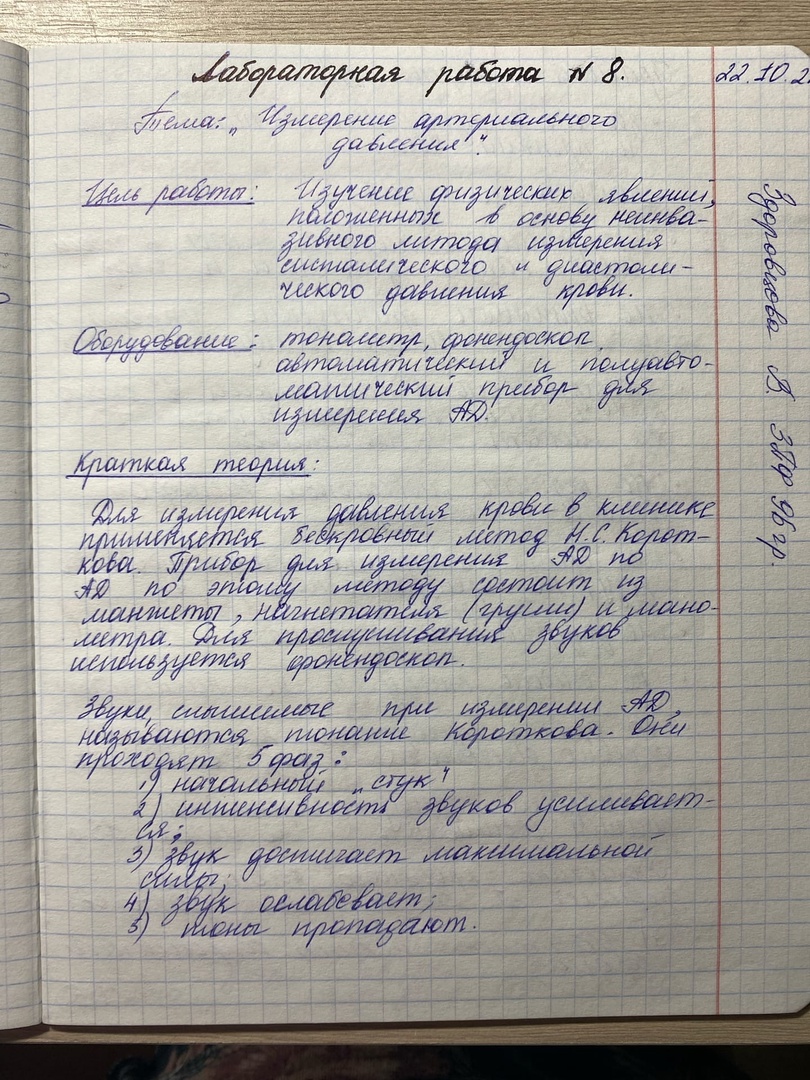 Лабораторная работа N 8.
22.10.2
Тема: „Измерение артериального
давления".
Цель работы: Изучение физических явлений,
положенных в основу неинва-
зивного метода измерения
систолического и диастоли-
ческого давления крови.
Оборудование: тонометр, фонендоскоп
автоматический и полуавто-
матический прибор для
измерения АД.
Краткая теория:
Для измерения давления крови в клинике
применяется бескровный метод Н.С. Корот-
кова. Прибор для измерения АД по
АД по этому методу состоит из
манжеты, нагнетателя (груши) и мано-
метра. Для прослушивания звуков
используется фонендоскоп.
Звуки, слышимые при измерении АД,
называются тонание Короткова. Они
проходят 5 фаз:
1) начальный „стук"
2) интенсивность звуков усиливает-
ся;
3) звук достигает максимальной
силы;
4) звук ослабевает;
5) тоны пропадают.
В. 96 гр.